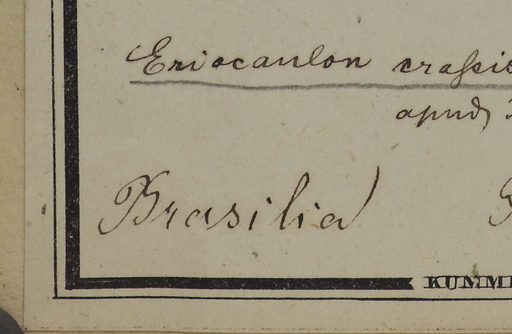 Eriocaulon crassi
apud
Brasilia
KUMME